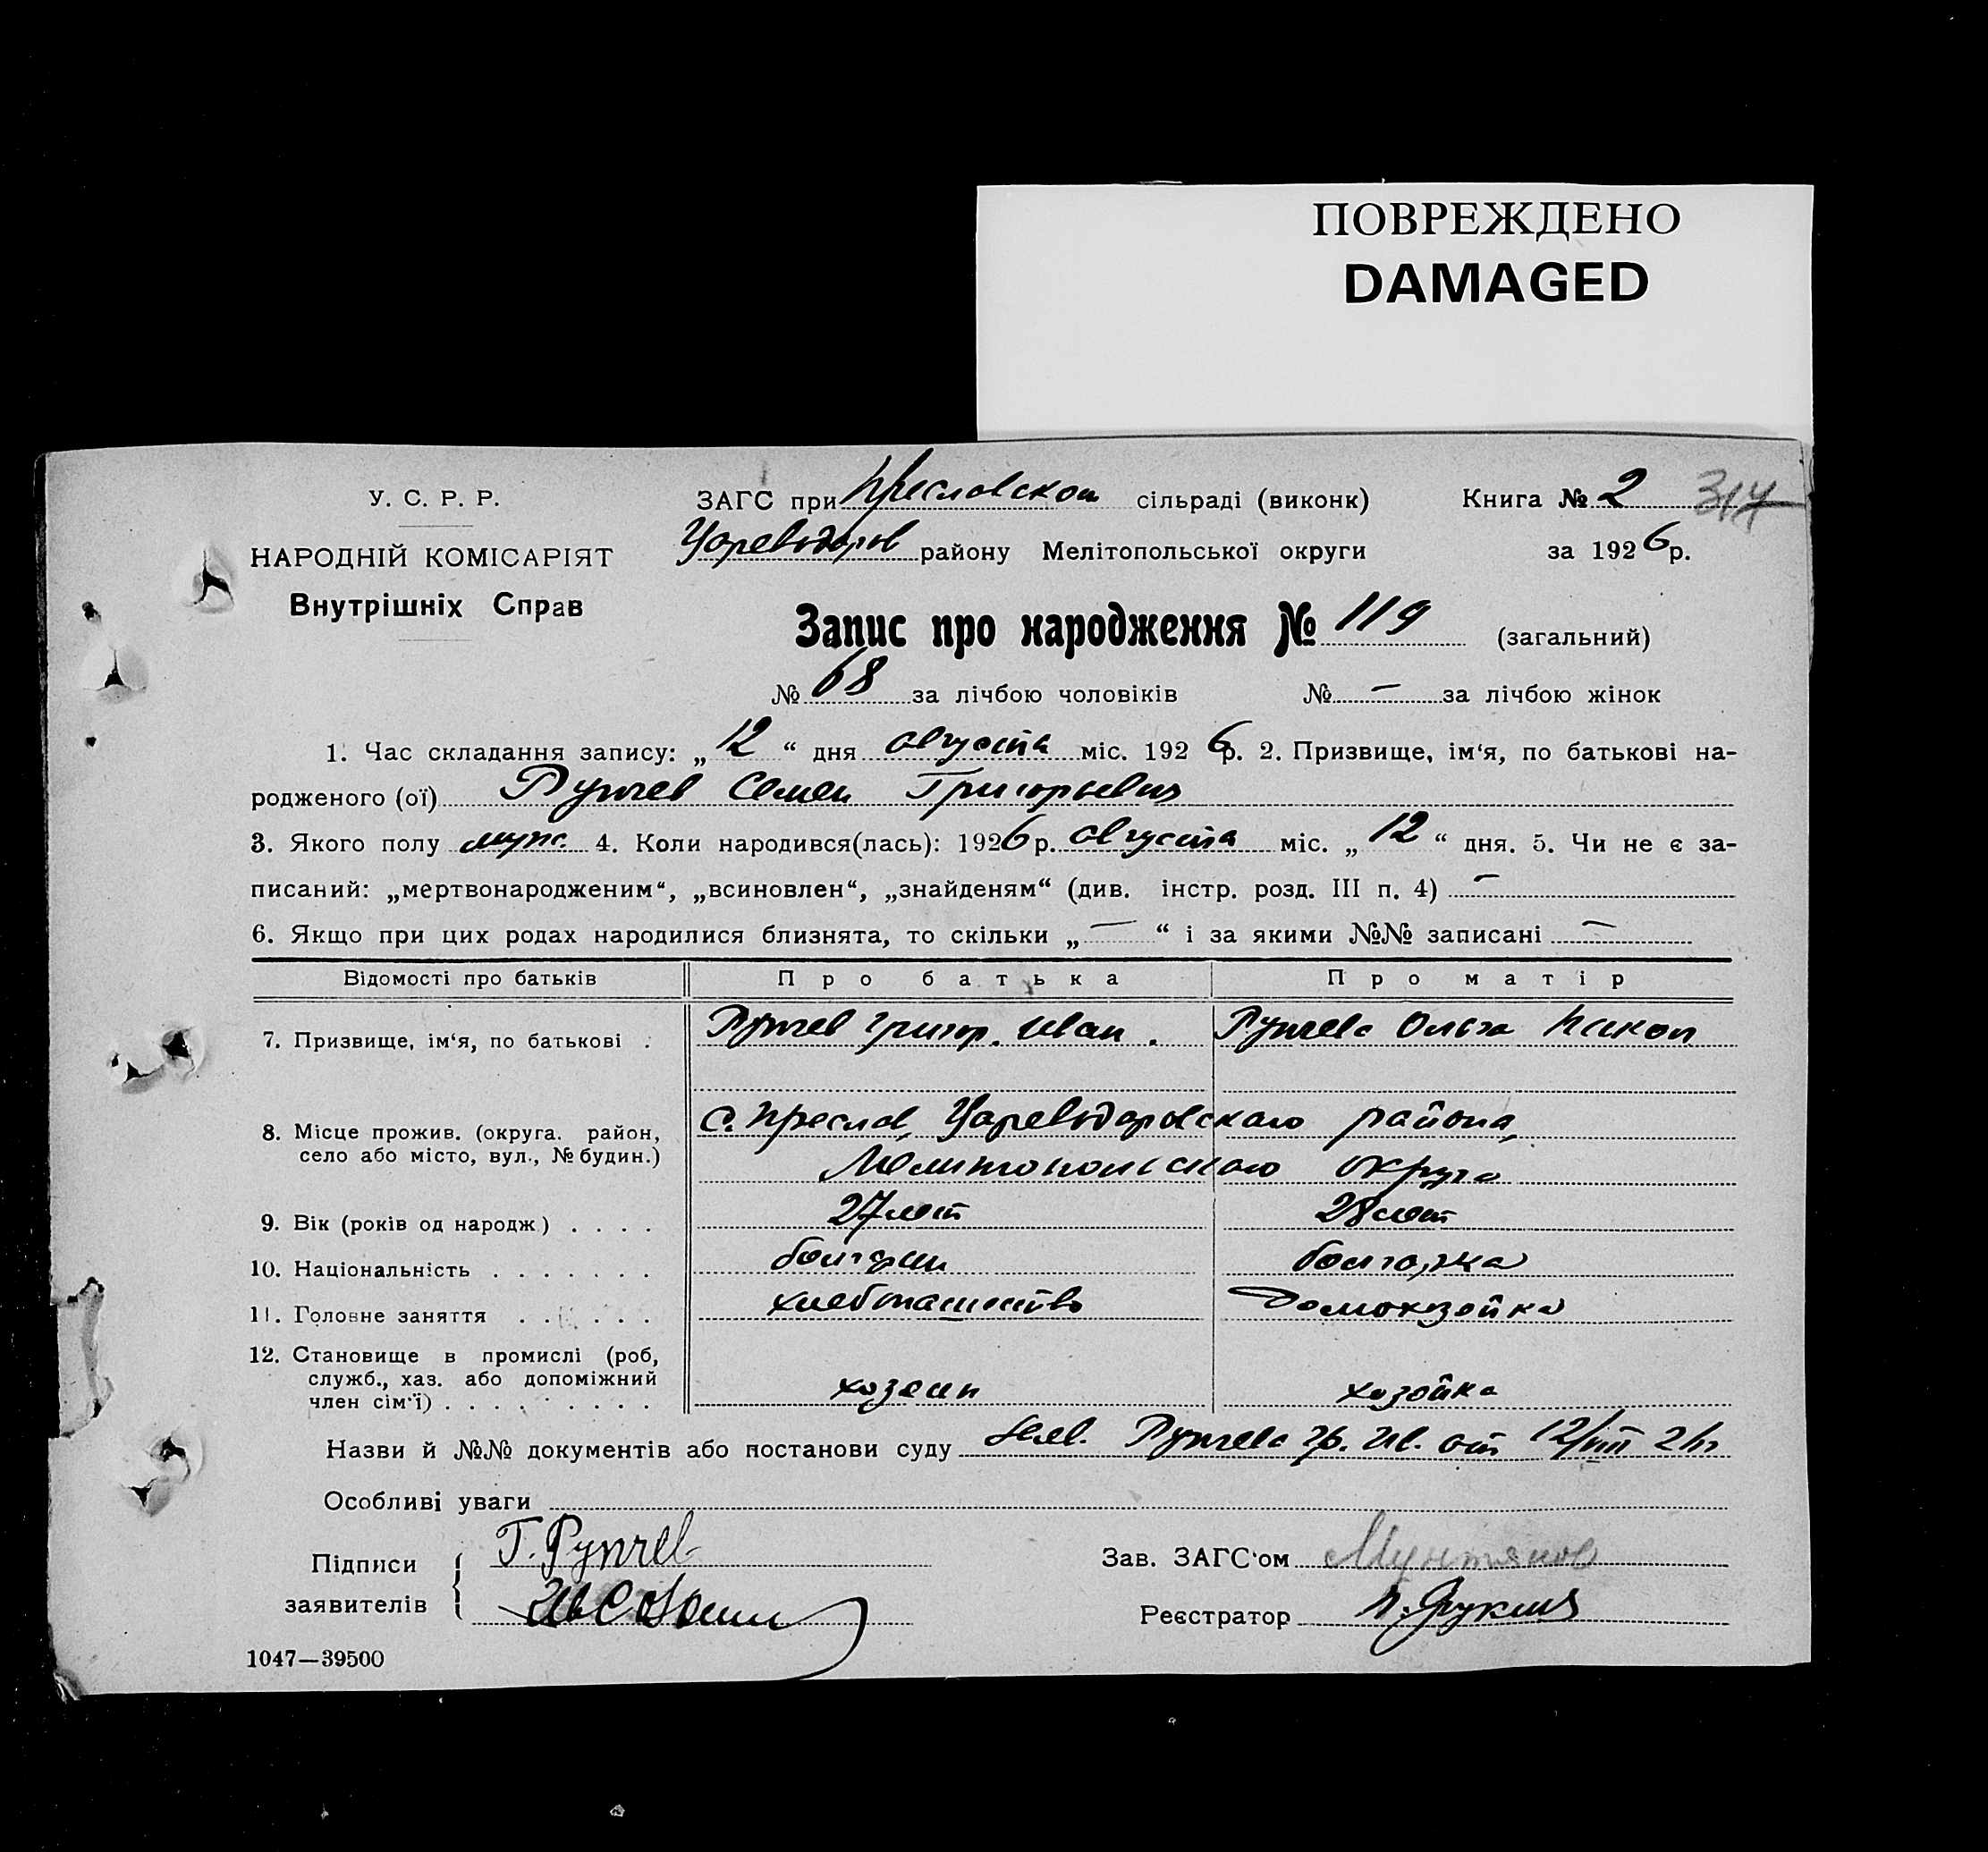 ПОВРЕЖДЕНО
DAMAGED
У. С. Р. Р.
НАРОДНІЙ КОМІСАРІЯТ
Внутрішніх Справ
ЗАГС при Преславском сільраді (виконк) Книга № 2 317
Цареводаров району Мелітопольської округи за 1926 р.
Запис про народження № 119 (загальний)
№ 68 за лічбою чоловіків № — за лічбою жінок
1. Час складання запису: „12“ дня августа міс. 1926 р. 2. Призвище, ім‘я, по батькові на-
родженого (ої) Рупчев Семен Григорьевич
3. Якого полу муж. 4. Коли народився(лась): 1926 р. августа міс. „12“ дня. 5. Чи не є за-
писаний: „мертвонародженим“, „всиновлен“, „знайденям“ (див. інстр. розд. III п. 4) —
6. Якщо при цих родах народилися близнята, то скільки „—“ і за якими №№ записані —
Відомості про батьків Про батька Про матір
7. Призвище, ім‘я, по батькові . Рупчев Григор. Иван. Рупчева Ольга Никол
8. Місце прожив. (округа. район, с. Преслав, Цареводаровского района,
село або місто, вул., № будин.) Мелитопольского округа
9. Вік (років од народж) . . . . 27 лет 28 лет
10. Національність . . . . . . . болгарин болгарка
11. Головне заняття . . . . . . хлебопашество Домохозяйка
12. Становище в промислі (роб,
служб., хаз. або допоміжний
член сім‘ї) . . . . . . . . . хозяин хозяйка
Назви й №№ документів або постанови суду Рупчева Гр. Ив. от 12/VIII 26 г
Особливі уваги
Підписи Г. Рупчев Зав. ЗАГС‘ом
заявителів Реєстратор
1047—39500